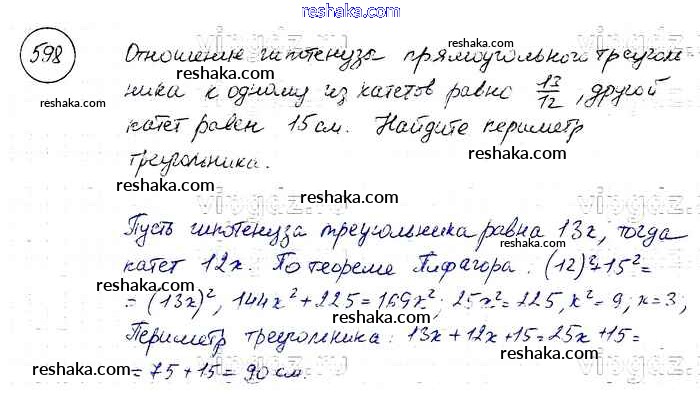 reshaka.com
598
Отношение гипотенузы прямоугольного треуголь
reshaka.com
ника к одному из катетов равно 13/12, другой
reshaka.com
катет равен 15 см. Найдите периметр
треугольника.
reshaka.com
reshaka.com
vipgdz.com
reshaka.com
Пусть гипотенуза треугольника равна 13x, тогда
reshaka.com
катет 12x. По теореме Пифагора: (12)²+15²=
reshaka.com
=(13x)², 144x²+225=169x²; 25x²=225, x²=9; x=3;
reshaka.com
Периметр треугольника: 13x+12x+15=25x+15=
reshaka.com
=75+15=90 см.
reshaka.com